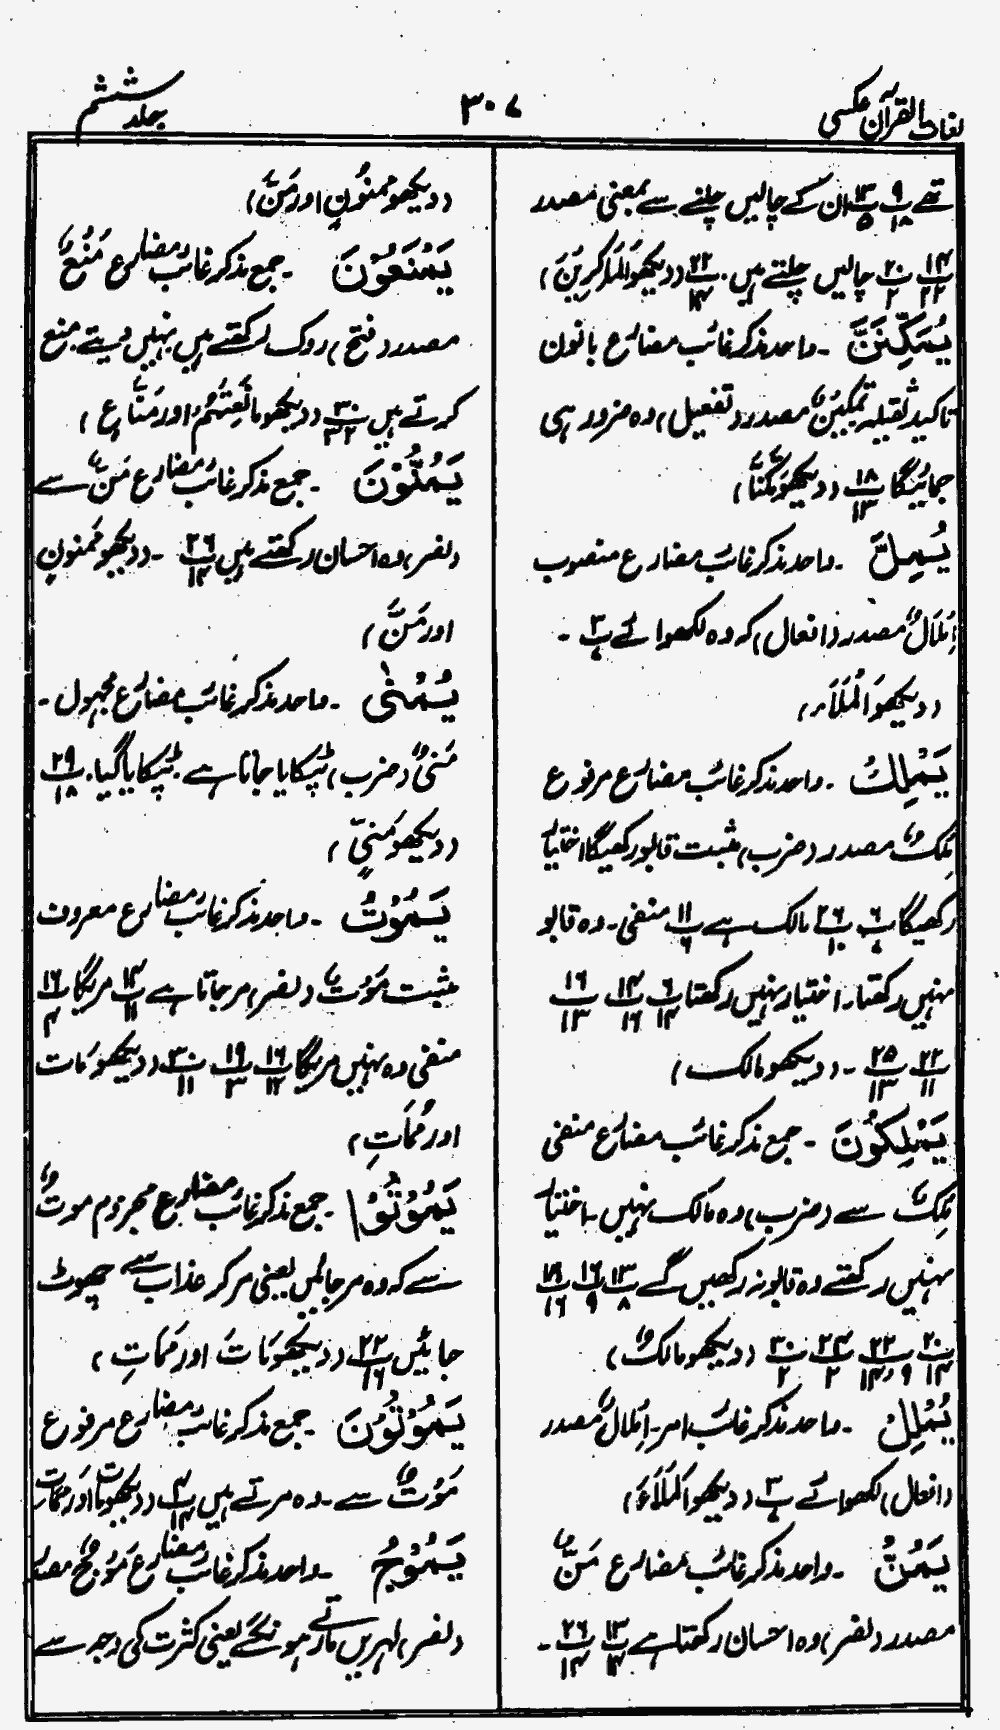 لغات القرآن عکسی
۳۰۷
جلد ششم
تھے ۹/۱۸ ۱۳/۵ ان کے چالیں چلنے سے بمعنی مصدر
۱۴/۲۲ ۲۰/۲ چالیں چلتے ہیں۔ ۲۲/۱۴ (دیکھو الْمَاكِرِيْنَ)
يُمَكِّنَنَّ ۔ واحد مذکر غائب مضارع بانون
تاکید ثقیلہ تَمْكِيْنٌ مصدر (تفعیل) وہ ضرور ہی
جمائیگا ۱۸/۱۳ (دیکھو مَكَّنَّا)
يُمِلَّ ۔ واحد مذکر غائب مضارع منصوب
اِمْلَالٌ مصدر (افعال) کہ وہ لکھوائے ۳/۷ ۔
(دیکھو اَلْمَلَاَ)
يَمْلِكُ ۔ واحد مذکر غائب مضارع مرفوع
مِلْكٌ مصدر (ضرب) مثبت قابو رکھیگا اختیار
رکھیگا ۶/۷ ۲۶/۱۰ مالک ہے ۱۱/۶ منفی۔ وہ قابو
نہیں رکھتا۔ اختیار نہیں رکھتا ۶/۱۴ ۱۴/۱۶ ۱۶/۱۳
۲۲/۱۱ ۲۵/۱۳ ۔ (دیکھو مالک)
يَمْلِكُوْنَ ۔ جمع مذکر غائب مضارع منفی
مِلْكٌ سے (ضرب) وہ مالک نہیں۔ اختیار
نہیں رکھتے وہ قابو نہ رکھیں گے ۱۳/۸ ۱۶/۹ ۱۹/۱۶
۲۰/۱۴ ۲۲/۹،۱۴ ۲۴/۲ ۳۰/۲ (دیکھو مالکٌ)
يُمْلِلْ ۔ واحد مذکر غائب امر۔ اِمْلَالٌ مصدر
(افعال) لکھوائے ۳/۷ (دیکھو اَلْمَلَاَءَ)
يَمُنُّ ۔ واحد مذکر غائب مضارع مَنٌّ
مصدر (نصر) وہ احسان رکھتا ہے ۱۳/۱۴ ۲۶/۱۴ ۔
(دیکھو ممنون اور مَنَّ)
يَمْنَعُوْنَ ۔ جمع مذکر غائب مضارع مَنْعٌ
مصدر (فتح) روک رکھتے ہیں نہیں دیتے منع
کرتے ہیں ۳۰/۳۲ (دیکھو مَانِعَتُهُمْ اور مَنَّاعٍ)
يَمُنُّوْنَ ۔ جمع مذکر غائب مضارع مَنٌّ سے
(نصر) وہ احسان رکھتے ہیں ۲۶/۱۴ ۔ (دیکھو ممنون
اور مَنَّ)
يُمْنٰى ۔ واحد مذکر غائب مضارع مجہول۔
مَنْیٌ (ضرب) ٹپکایا جاتا ہے۔ ٹپکایا گیا۔ ۲۹/۱۸
(دیکھو مَنِيٍّ)
يَمُوْتُ ۔ واحد مذکر غائب مضارع معروف
مثبت مَوْتٌ (نصر) مرجاتا ہے ۱۴/۱۱ مریگا ۱۶/۴
منفی وہ نہیں مریگا ۱۶/۱۲ ۱۹/۳ ۳۰/۱۱ (دیکھو مَات
اور مَمَاتِ)
يَمُوْتُوْا ۔ جمع مذکر غائب مضارع مجزوم موتٌ
سے کہ وہ مرجائیں یعنی مرکر عذاب سے چھوٹ
جائیں ۲۲/۱۶ (دیکھو مَاتَ اور مَمَاتِ)
يَمُوْتُوْنَ ۔ جمع مذکر غائب مضارع مرفوع
مَوْتٌ سے۔ وہ مرتے ہیں ۴/۱۴ (دیکھو مات اور ممات)
يَمُوْجُ ۔ واحد مذکر غائب مضارع مَوْجٌ مصدر
(نصر) لہریں مارتے ہونگے یعنی کثرت کی وجہ سے